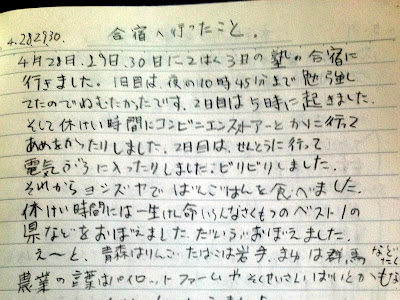 4.28.29.30. 合宿へ行ったこと.
4月28日、29日、30日に2はく3日の塾の合宿に
行きました。1日目は、夜の10時45分まで勉強し
てたのでねむたかったです。2日目は5時に起きました.
そして休けい時間にコンビニエンスストアーとかに行って
あめをかったりしました。2日目は、せんとうに行って
電気ぶろに入ったりしました。ビリビリしました.
それからヨシズヤでばんごはんを食べました.
休けい時間には一生けん命いろんなさくもつのベスト1の
県などをおぼえました。だいぶおぼえました.
え〜と、青森はりんご、たばこは岩手、まゆは群馬などたく
農業の言葉はパイロットファームやそくせいさいばいとかもな